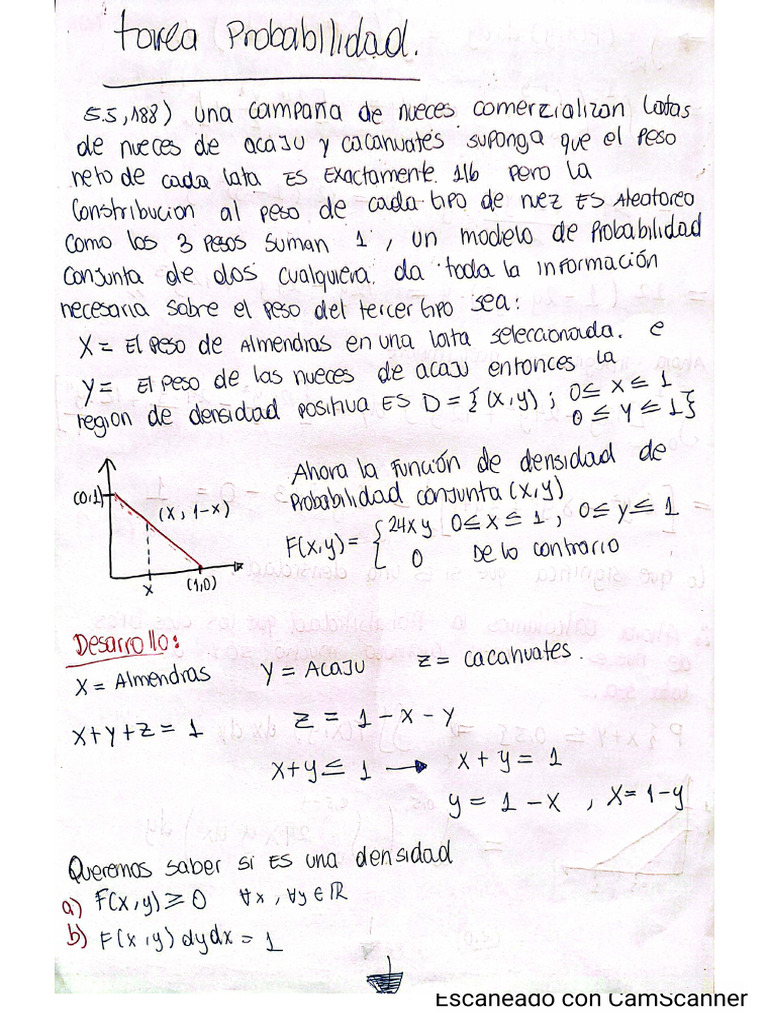 tarea Probabilidad.
5.5,188) una campaña de nueces comerzializan latas
de nueces de acaJu y cacahuates suponga que el peso
neto de cada lata Es Exactamente 1lb pero la
Constribucion al peso de cada tipo de nez Es Aleatoreo
como los 3 pesos suman 1 , un modelo de Probabilidad
conjunta de dos cualquiera. da toda la información
necesaria sobre el peso del tercer tipo sea:
X = El peso de Almendras en una lata seleccionada. e
Y = El peso de las nueces de acaju entonces la
region de densidad positiva Es D = { (x,y) ; 0 ≤ x ≤ 1
0 ≤ y ≤ 1 }
Ahora la función de densidad de
Probabilidad conjunta (x,y)
F(x,y) = { 24xy 0 ≤ x ≤ 1 , 0 ≤ y ≤ 1
0 De lo contrario
(0,1)
(x, 1-x)
x
(1,0)
Desarrollo:
X = Almendras Y = AcaJu Z = cacahuates.
x+y+z = 1 z = 1 - x - y
x+y ≤ 1 → x + y = 1
y = 1 - x , x = 1-y
Queremos saber si Es una densidad
a) F(x,y) ≥ 0 ∀x , ∀y ∈ ℝ
b) F(x,y) dydx = 1
1
Escaneado con CamScanner